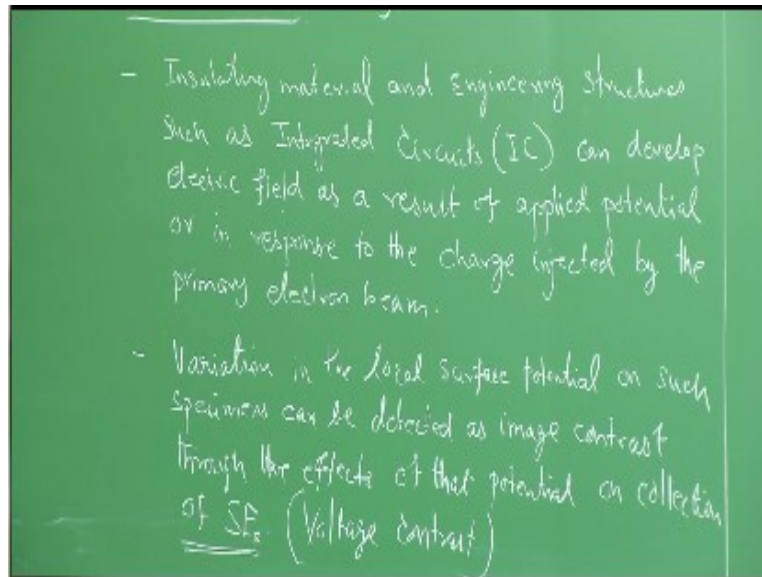 - Insulating material and Engineering structures
such as Integrated Circuits (IC) can develop
electric field as a result of applied potential
or in response to the charge injected by the
primary electron beam.
- Variation in the local surface potential on such
specimens can be detected as image contrast
through the effects of that potential on collection
of SEs (Voltage contrast)